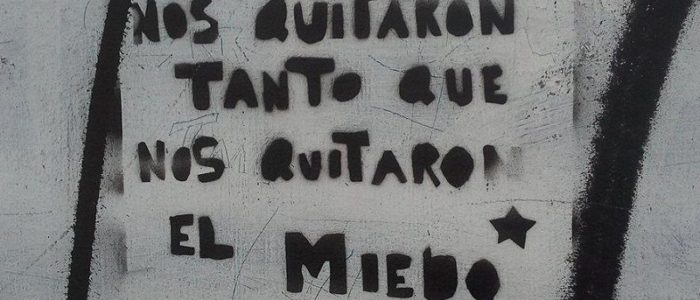 NOS QUITARON
TANTO QUE
NOS QUITARON
EL MIEDO